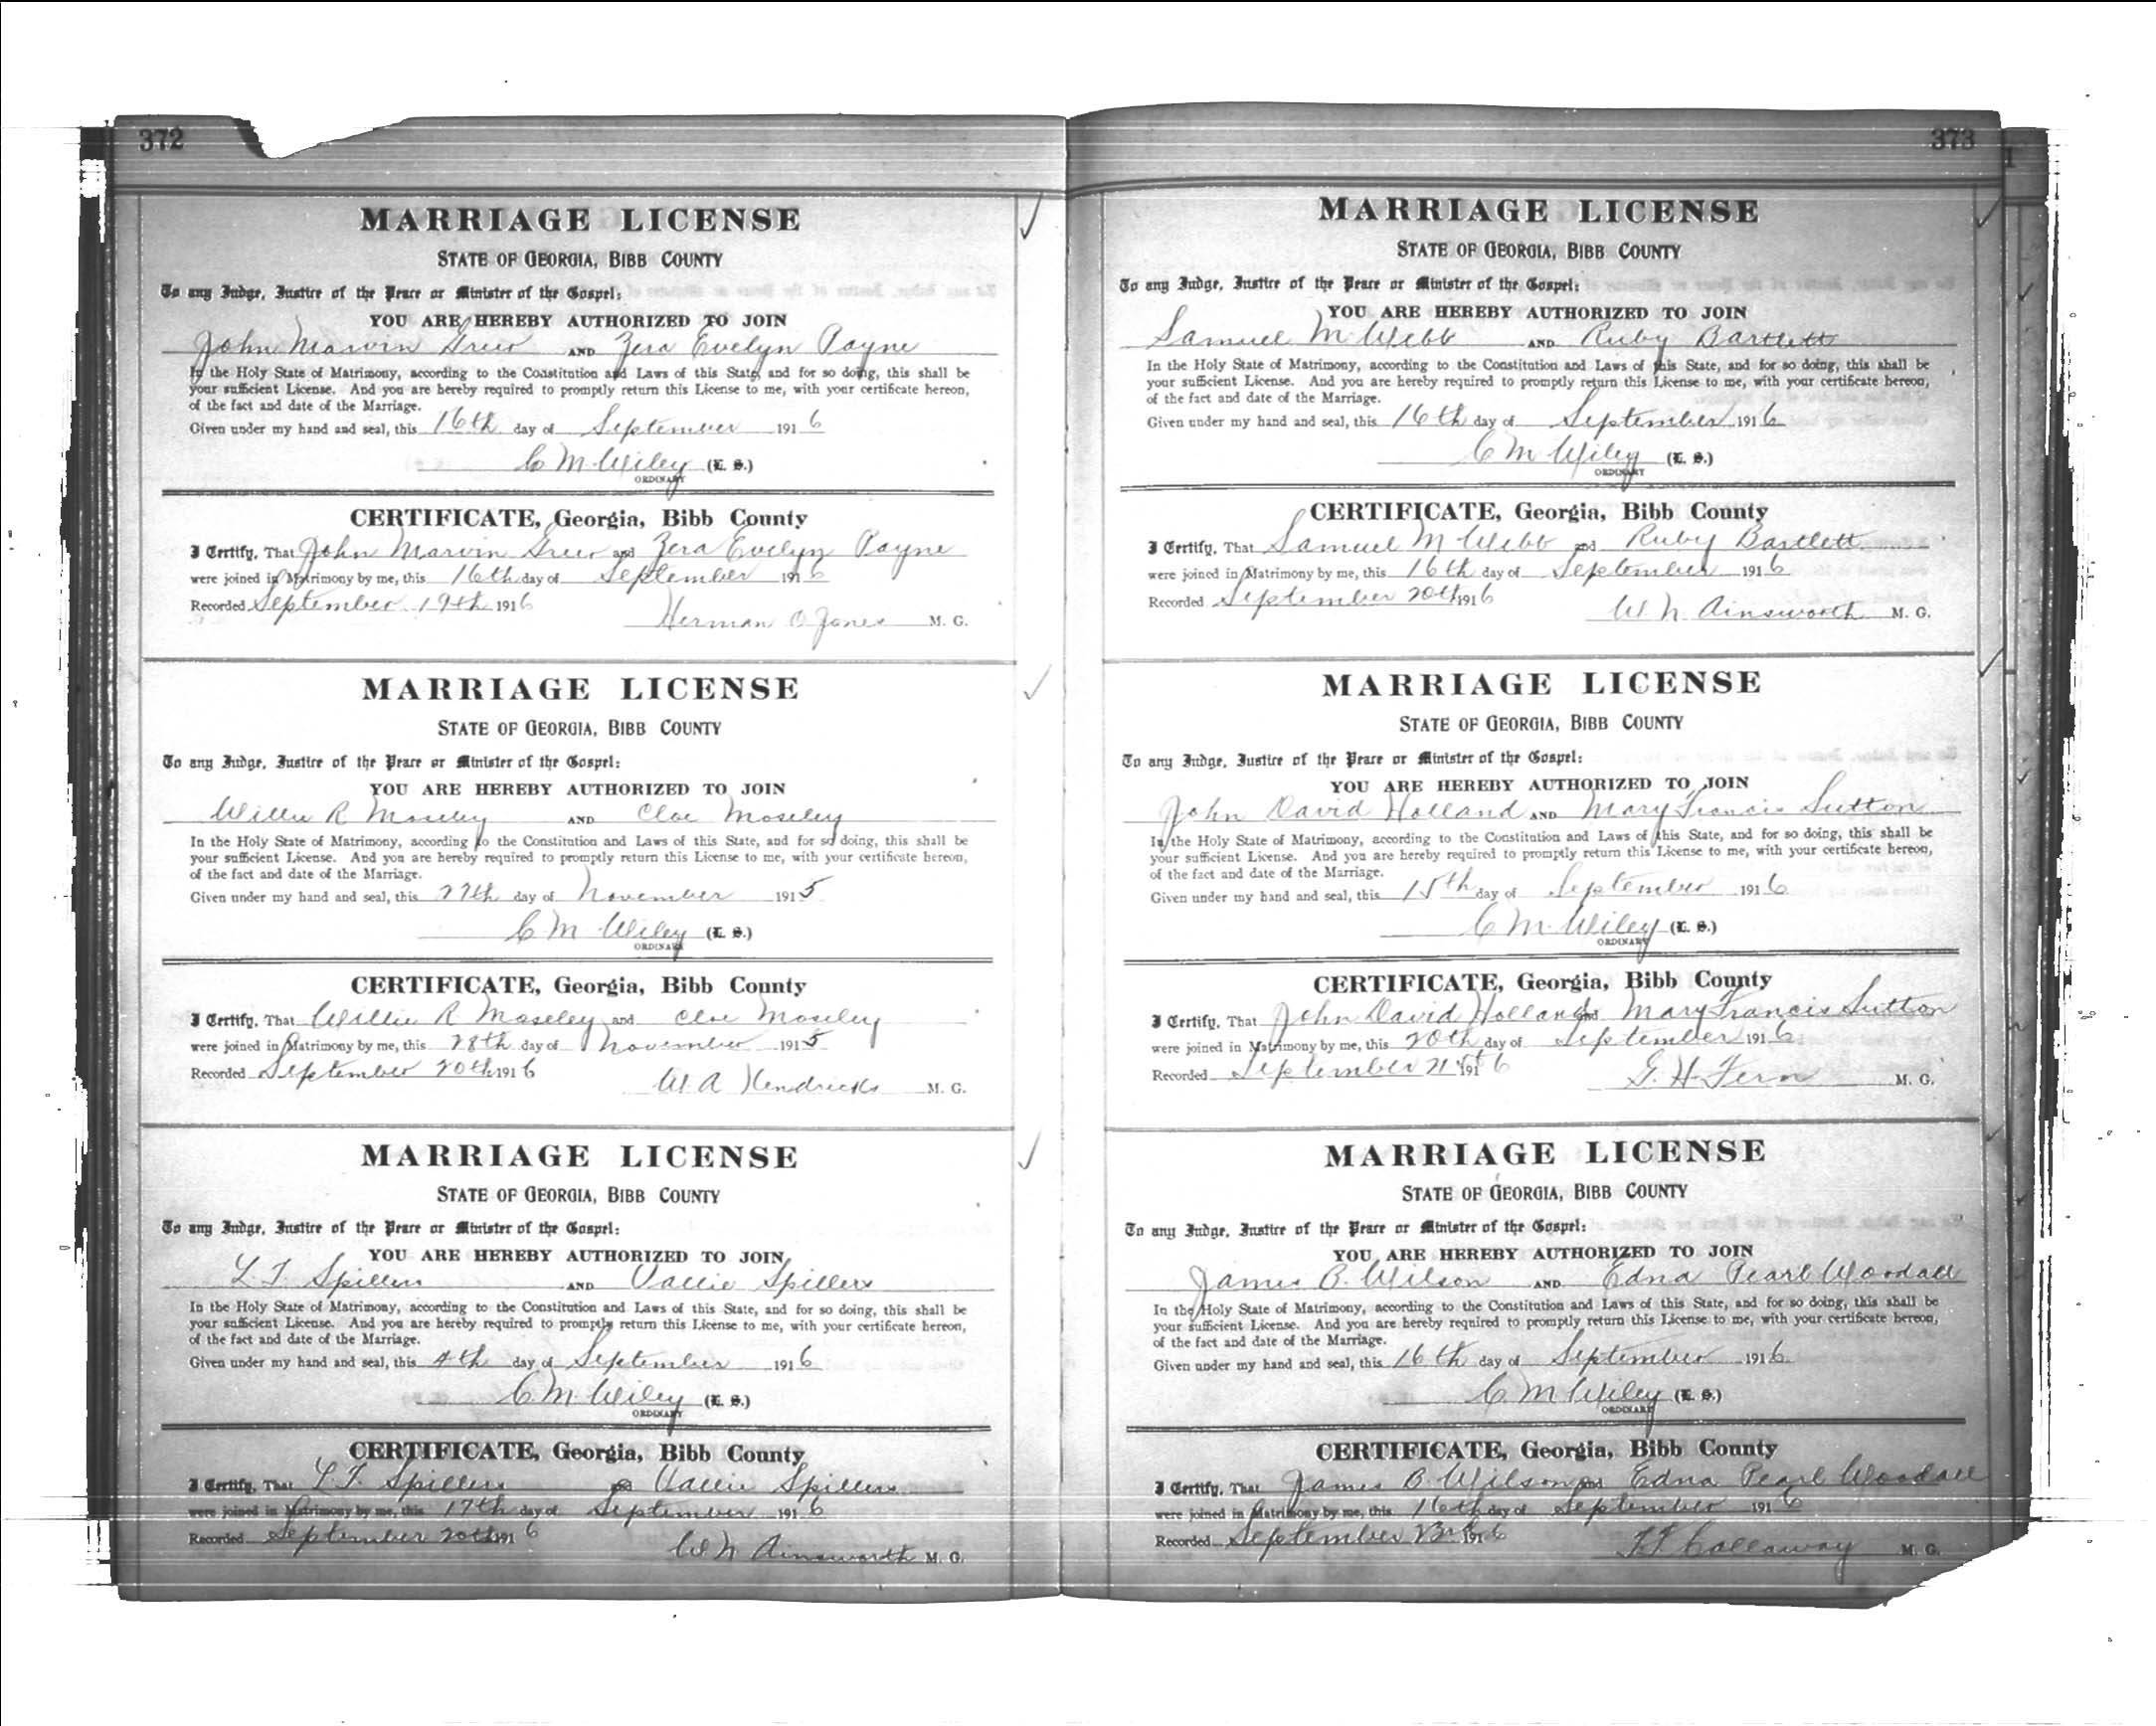 372
MARRIAGE LICENSE
STATE OF GEORGIA, BIBB COUNTY
To any Judge, Justice of the Peace or Minister of the Gospel:
YOU ARE HEREBY AUTHORIZED TO JOIN
John Marvin AND Zera Evelyn Payne
In the Holy State of Matrimony, according to the Constitution and Laws of this State, and for so doing, this shall be
your sufficient License. And you are hereby required to promptly return this License to me, with your certificate hereon,
of the fact and date of the Marriage.
Given under my hand and seal, this 16th day of September 1916
C M Wiley (L. S.)
ORDINARY
CERTIFICATE, Georgia, Bibb County
I Certify, That John Marvin and Zera Evelyn Payne
were joined in Matrimony by me, this 16th day of September 1916
Recorded September 19th 1916
Herman O Jones M. G.
MARRIAGE LICENSE
STATE OF GEORGIA, BIBB COUNTY
To any Judge, Justice of the Peace or Minister of the Gospel:
YOU ARE HEREBY AUTHORIZED TO JOIN
Willie R Moseley AND Cloe Moseley
In the Holy State of Matrimony, according to the Constitution and Laws of this State, and for so doing, this shall be
your sufficient License. And you are hereby required to promptly return this License to me, with your certificate hereon,
of the fact and date of the Marriage.
Given under my hand and seal, this 27th day of November 1915
C M Wiley (L. S.)
ORDINARY
CERTIFICATE, Georgia, Bibb County
I Certify, That Willie R Moseley and Cloe Moseley
were joined in Matrimony by me, this 28th day of November 1915
Recorded September 20th 1916
W. A Hendricks M. G.
MARRIAGE LICENSE
STATE OF GEORGIA, BIBB COUNTY
To any Judge, Justice of the Peace or Minister of the Gospel:
YOU ARE HEREBY AUTHORIZED TO JOIN
L T Spillers AND Vallie Spillers
In the Holy State of Matrimony, according to the Constitution and Laws of this State, and for so doing, this shall be
your sufficient License. And you are hereby required to promptly return this License to me, with your certificate hereon,
of the fact and date of the Marriage.
Given under my hand and seal, this 4th day of September 1916
C. M. Wiley (L. S.)
ORDINARY
CERTIFICATE, Georgia, Bibb County
I Certify, That L. T. Spillers and Vallie Spillers
were joined in Matrimony by me, this 17th day of September 1916
Recorded September 20th 1916
W N Ainsworth M. G.
373
MARRIAGE LICENSE
STATE OF GEORGIA, BIBB COUNTY
To any Judge, Justice of the Peace or Minister of the Gospel:
YOU ARE HEREBY AUTHORIZED TO JOIN
Samuel M Webb AND Ruby Bartlett
In the Holy State of Matrimony, according to the Constitution and Laws of this State, and for so doing, this shall be
your sufficient License. And you are hereby required to promptly return this License to me, with your certificate hereon,
of the fact and date of the Marriage.
Given under my hand and seal, this 16th day of September 1916
C M Wiley (L. S.)
ORDINARY
CERTIFICATE, Georgia, Bibb County
I Certify, That Samuel M Webb and Ruby Bartlett
were joined in Matrimony by me, this 16th day of September 1916
Recorded September 20th 1916
W. N. Ainsworth M. G.
MARRIAGE LICENSE
STATE OF GEORGIA, BIBB COUNTY
To any Judge, Justice of the Peace or Minister of the Gospel:
YOU ARE HEREBY AUTHORIZED TO JOIN
John David Holland AND Mary Francis Sutton
In the Holy State of Matrimony, according to the Constitution and Laws of this State, and for so doing, this shall be
your sufficient License. And you are hereby required to promptly return this License to me, with your certificate hereon,
of the fact and date of the Marriage.
Given under my hand and seal, this 15th day of September 1916
C M. Wiley (L. S.)
ORDINARY
CERTIFICATE, Georgia, Bibb County
I Certify, That John David Holland and Mary Francis Sutton
were joined in Matrimony by me, this 20th day of September 1916
Recorded September 21st 1916
G. H. Fern M. G.
MARRIAGE LICENSE
STATE OF GEORGIA, BIBB COUNTY
To any Judge, Justice of the Peace or Minister of the Gospel:
YOU ARE HEREBY AUTHORIZED TO JOIN
James B. Wilson AND Edna Pearl Woodall
In the Holy State of Matrimony, according to the Constitution and Laws of this State, and for so doing, this shall be
your sufficient License. And you are hereby required to promptly return this License to me, with your certificate hereon,
of the fact and date of the Marriage.
Given under my hand and seal, this 16th day of September 1916
C. M Wiley (L. S.)
ORDINARY
CERTIFICATE, Georgia, Bibb County
I Certify, That James B. Wilson and Edna Pearl Woodall
were joined in Matrimony by me, this 16th day of September 1916
Recorded September 1916
T F Callaway M. G.